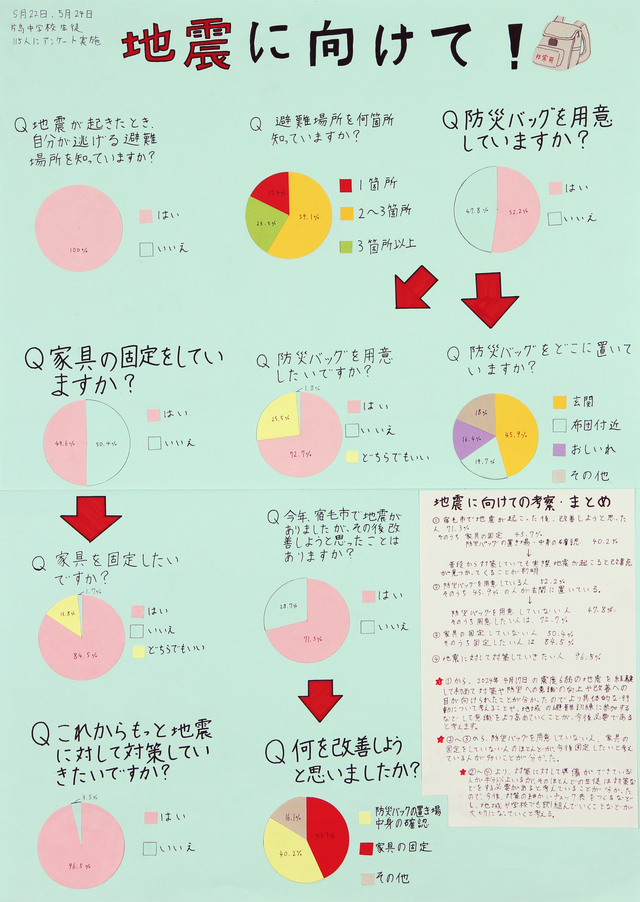 5月22日、5月24日
片島中学校生徒
115人にアンケート実施
地震に向けて！
非常用
Q 地震が起きたとき、
自分が逃げる避難
場所を知っていますか？
100%
はい
いいえ
Q 避難場所を何箇所
知っていますか？
59.1%
1箇所
2〜3箇所
3箇所以上
Q 防災バッグを用意
していますか？
47.8%
52.2%
はい
いいえ
Q 家具の固定をしてい
ますか？
49.6%
50.4%
はい
いいえ
Q 防災バッグを用意
したいですか？
1.8%
25.5%
72.7%
はい
いいえ
どちらでもいい
Q 防災バッグをどこに置いて
いますか？
18%
45.9%
16.4%
19.7%
玄関
布団付近
おしいれ
その他
Q 家具を固定したい
ですか？
1.7%
13.8%
84.5%
はい
いいえ
どちらでもいい
Q 今年、宿毛市で地震が
ありましたが、その後改
善しようと思ったことは
ありますか？
28.7%
71.3%
はい
いいえ
Q これからもっと地震
に対して対策してい
きたいですか？
3.5%
96.5%
はい
いいえ
Q 何を改善しよう
と思いましたか？
16.1%
43.7%
40.2%
防災バックの置き場
中身の確認
家具の固定
その他
地震に向けての考察・まとめ
① 宿毛市で地震が起こった後、改善しようと思った
人 71.3%
そのうち 家具の固定 43.7%
防災バッグの置き場・中身の確認 40.2%
普段から対策していても実際地震が起こると改善点
が見つかってくることが判明
② 防災バッグを用意している人 52.2%
そのうち 45.9%の人が玄関に置いている。
防災バッグを用意していない人 47.8%
そのうち用意したい人は、72.7%
③ 家具の固定していない人 50.4%
そのうち固定したい人は 84.5%
④ 地震に対して対策していきたい人 96.5%
★ ①から、2024年4月17日の震度6弱の地震を経験
して初めて対策や防災への意識の向上や改善への
目が向けられたことが分かったのでより具体的な行
動について考えることや、地域の避難訓練に参加する
などして意識をより高めていくことが、今後必要である
と考えます。
★ ②〜③から、防災バッグを用意していない人、家具の
固定をしていない人のほとんどが、今後固定したいと考え
ている人が多いことが分かった。
★ ②〜④より、対策に対して準備ができている